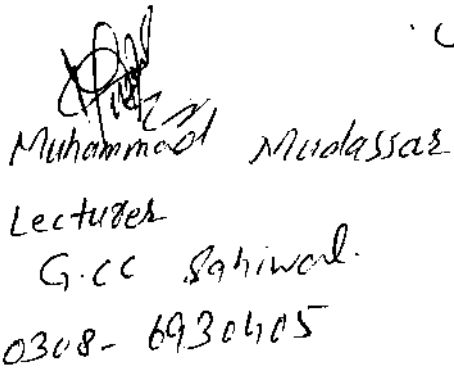 Muhammad Mudassar
Lecturer
G.CC Sahiwal.
0308-6930405